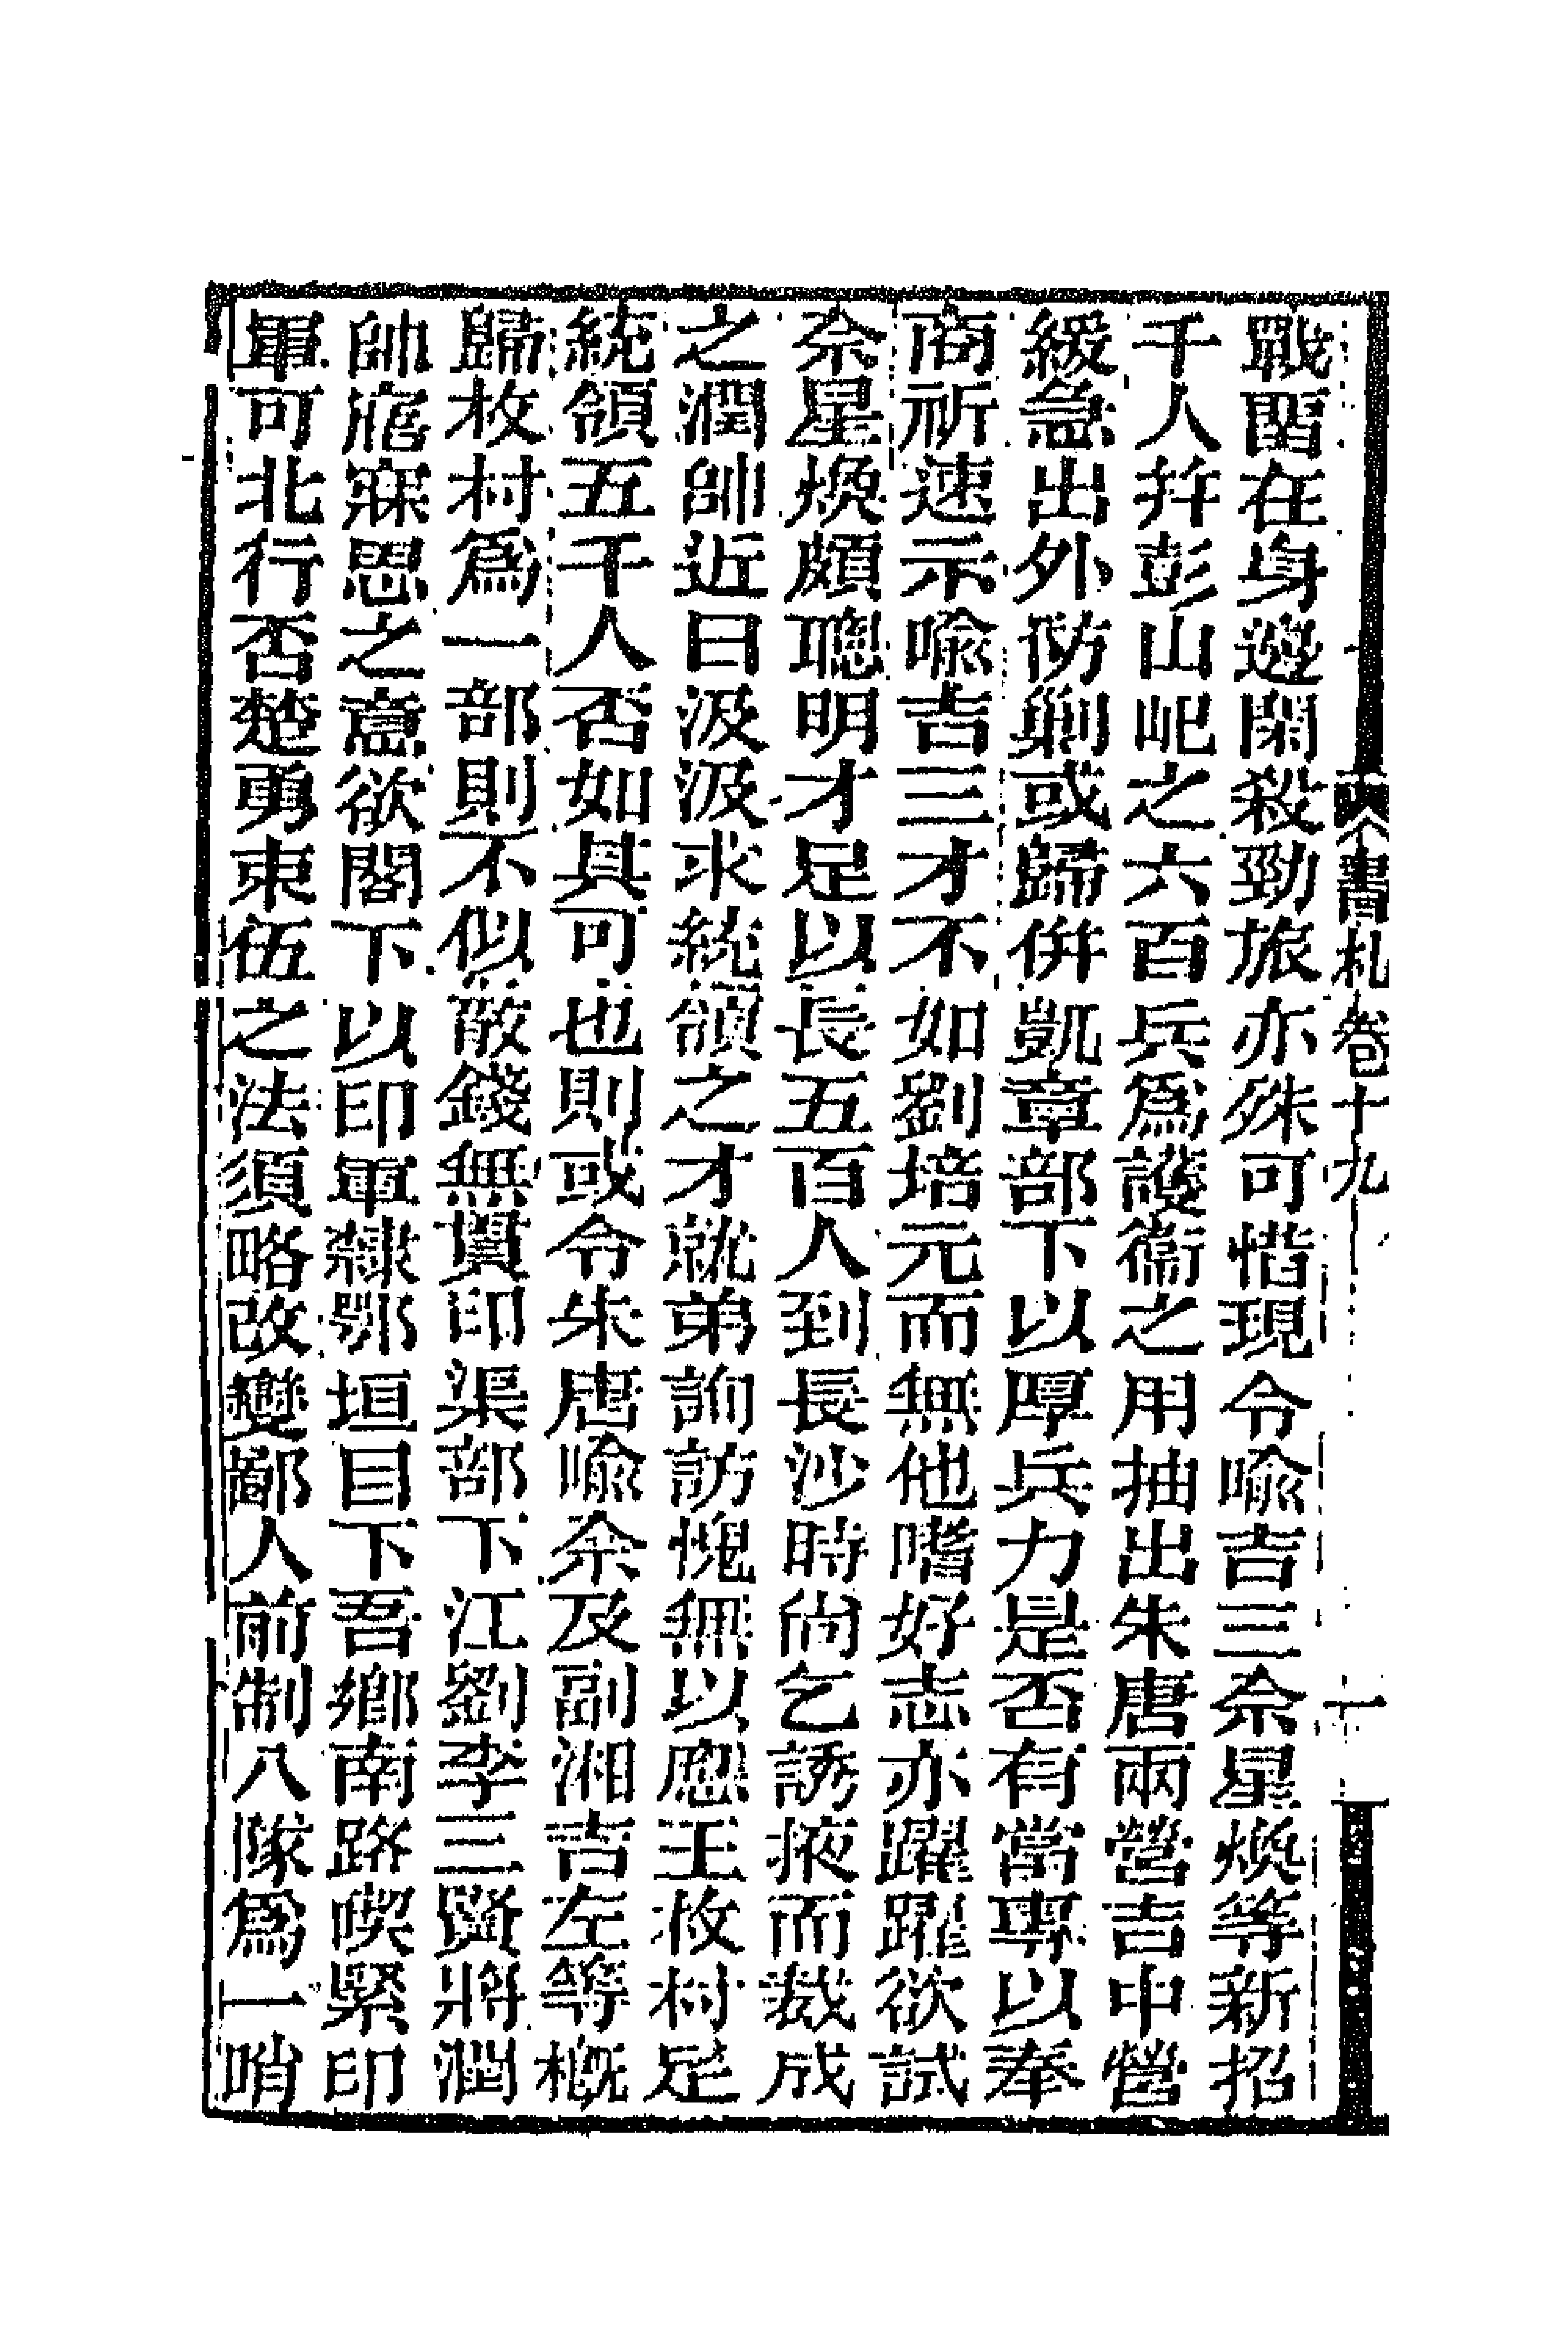 書札卷十九
十一
戰酉在身邊閑殺勁旅亦殊可惜現令喩吉三余星煥等新招
千人幷彭山屺之六百兵爲護衞之用抽出朱唐兩營吉中營
緩急出外防剿或歸併凱章部下以厚兵力是否有當專以奉
商祈速示喩吉三才不如劉培元而無他嗜好志亦躍躍欲試
余星煥頗聰明才足以長五百人到長沙時尙乞誘掖而裁成
之潤帥近日汲汲求統領之才就弟詢訪愧無以應王枚村足
統領五千人否如其可也則或令朱唐喩余及副湘吉左等槪
歸枚村爲一部則不似散錢無貫印渠部下江劉李三賢將潤
帥寤寐思之意欲閣下以印軍隸鄂垣目下吾鄕南路喫緊印
軍可北行否楚勇束伍之法須略改變鄙人前制八隊爲一哨